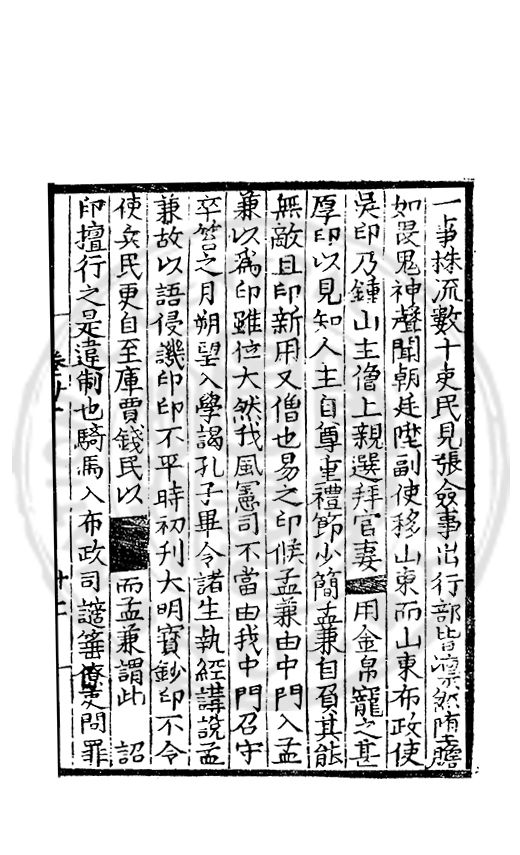 一事株流數十吏民見張僉事出行部皆凛然墮膽
如畏鬼神聲聞朝廷陞副使移山東而山東布政使
吳印乃鍾山主僧上親選拜官妻用金帛寵之甚
厚印以見知人主自尊重禮節少簡孟兼自負其能
無敵且印新用又僧也易之印候孟兼由中門入孟
兼以為印雖位大然我風憲司不當由我中門召守
卒笞之月朔望入學謁孔子畢令諸生執經講說孟
兼故以語侵譏印印不平時初刋大明寶鈔印不令
使兵民更自至庫賈錢民以而孟兼謂此詔
印擅行之是違制也騎馬入布政司讁簿僚吏問罪
卷
十二